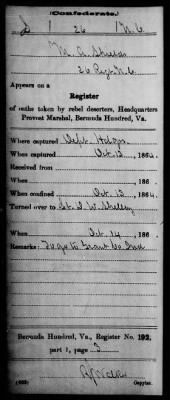 (Confederate.)
S 1 26 N.C.
26 Regt. N.C.
Appears on a
Register
of oaths taken by rebel deserters, Headquarters
Provost Marshal, Bermuda Hundred, Va.
Where captured Dept. Hdqrs.
When captured Oct. 13, 1864.
Received from
When , 186 .
When confined Oct. 13, 1864.
Turned over to Lt. D. W.
When Oct. 14 , 186 .
Remarks: To go to Grant Co. Ind
Bermuda Hundred, Va., Register No. 192,
part 1, page 3
Copyist.